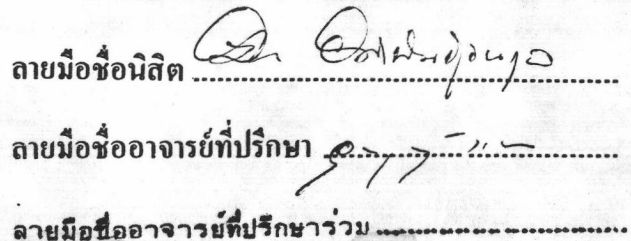 ลายมือชื่อนิสิต
ลายมือชื่ออาจารย์ที่ปรึกษา
ลายมือชื่ออาจารย์ที่ปรึกษาร่วม